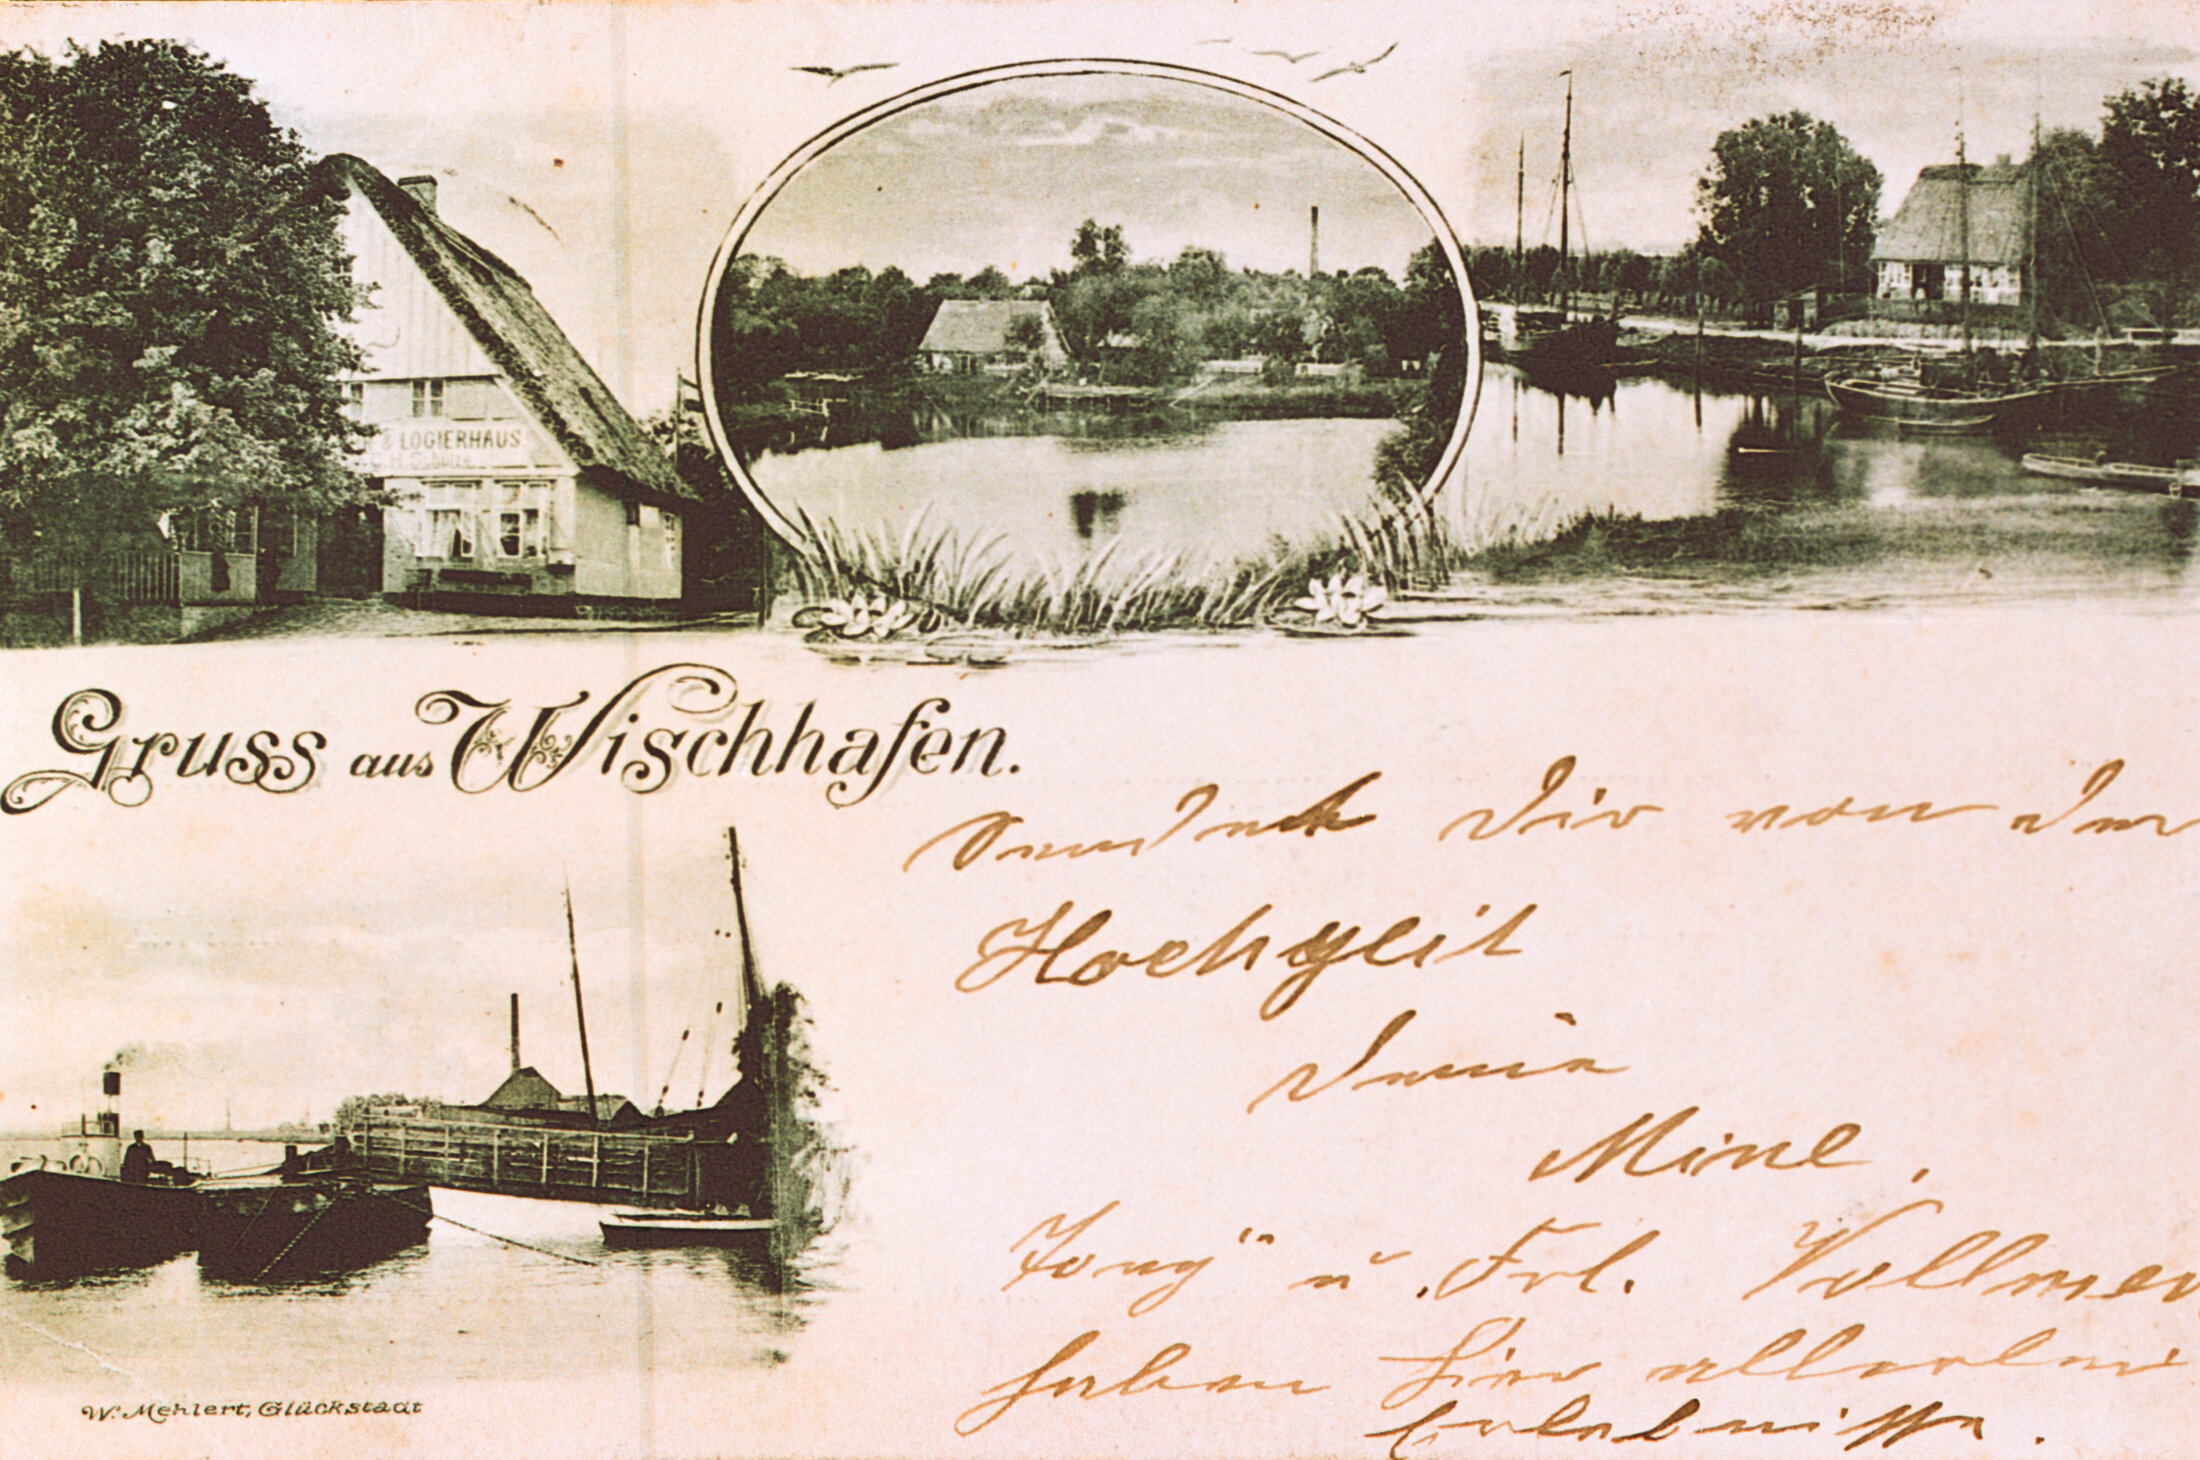 & LOGIERHAUS
Gruss aus Wischhafen.
sendet Dir von der
Hochzeit
Deine
Mine,
"Tony" u. Frl. Vollmer
haben hier allerlei
Erlebnisse.
W. Mehlert, Glückstadt